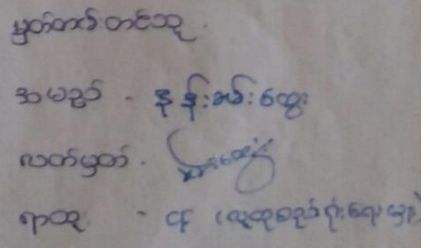 မှတ်တမ်းတင်သူ
အမည် - နန်းခမ်းထွေး
လက်မှတ် -
ရာထူး - ဌမှူး (လူထုစည်းရုံးရေးမှူး)